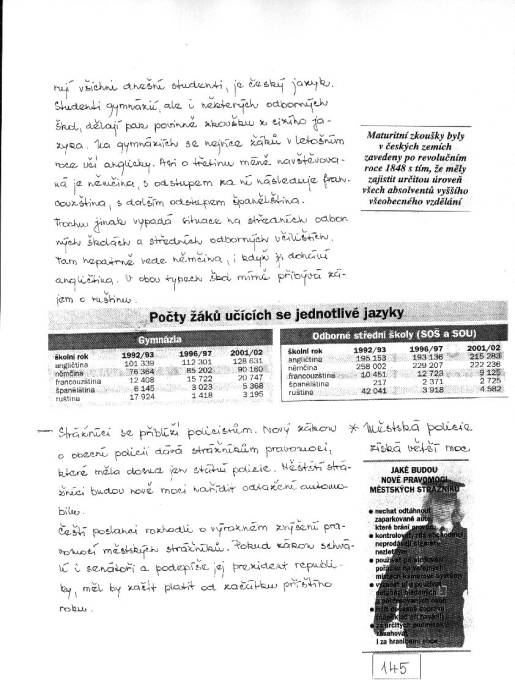 rují všichni dnešní studenti, je český jazyk.
Studenti gymnázií, ale i některých odborných
škol, dělají pak povinně zkoušku z cizího ja-
zyka. Na gymnáziích se nejvíce žáků v letošním
roce učí anglicky. Asi o třetinu méně navštěvova-
ná je němčina, s odstupem za ní následuje fran-
couzština, s dalším odstupem španělština.
Trochu jinak vypadá situace na středních odbor
ných školách a středních odborných učilištích.
Tam nepatrně vede němčina, i když ji dohání
angličtina. V obou typech škol mírně přibývá zá-
jem o ruštinu.
Maturitní zkoušky byly
v českých zemích
zavedeny po revolučním
roce 1848 s tím, že měly
zajistit určitou úroveň
všech absolventů vyššího
všeobecného vzdělání
Počty žáků učících se jednotlivé jazyky
Gymnázia
školní rok 1992/93 1996/97 2001/02
angličtina 101 339 112 301 128 631
němčina 76 364 85 202 90 160
francouzština 12 408 15 722 20 747
španělština 6 145 3 023 5 368
ruština 17 924 1 418 3 195
Odborné střední školy (SOŠ a SOU)
školní rok 1992/93 1996/97 2001/02
angličtina 195 153 193 136 215 283
němčina 258 002 229 207 222 236
francouzština 10 451 12 723 9 125
španělština 217 2 371 2 725
ruština 42 041 3 918 4 582
— Strážníci se přiblíží policistům. Nový zákon
o obecní policii dává strážníkům pravomoci,
které měla dosud jen státní policie. Městští strá-
žníci budou nově moci nařídit odtažení automo-
bilu.
Čeští poslanci rozhodli o výrazném zvýšení pra-
vomocí městských strážníků. Pokud zákon schvá-
lí i senátoři a podepíše jej prezident republi-
ky, měl by začít platit od začátku příštího
roku.
* Městská policie
získá větší moc
JAKÉ BUDOU
NOVÉ PRAVOMOCI
MĚSTSKÝCH STRÁŽNÍKŮ
• nechat odtáhnout
zaparkované auto,
které brání provozu
• kontrolovat, zda obchodníci
neprodávají
• používat
pořádku na veřejných
místech kamerové systémy
•
zasahovat
i za hranicemi obce
145